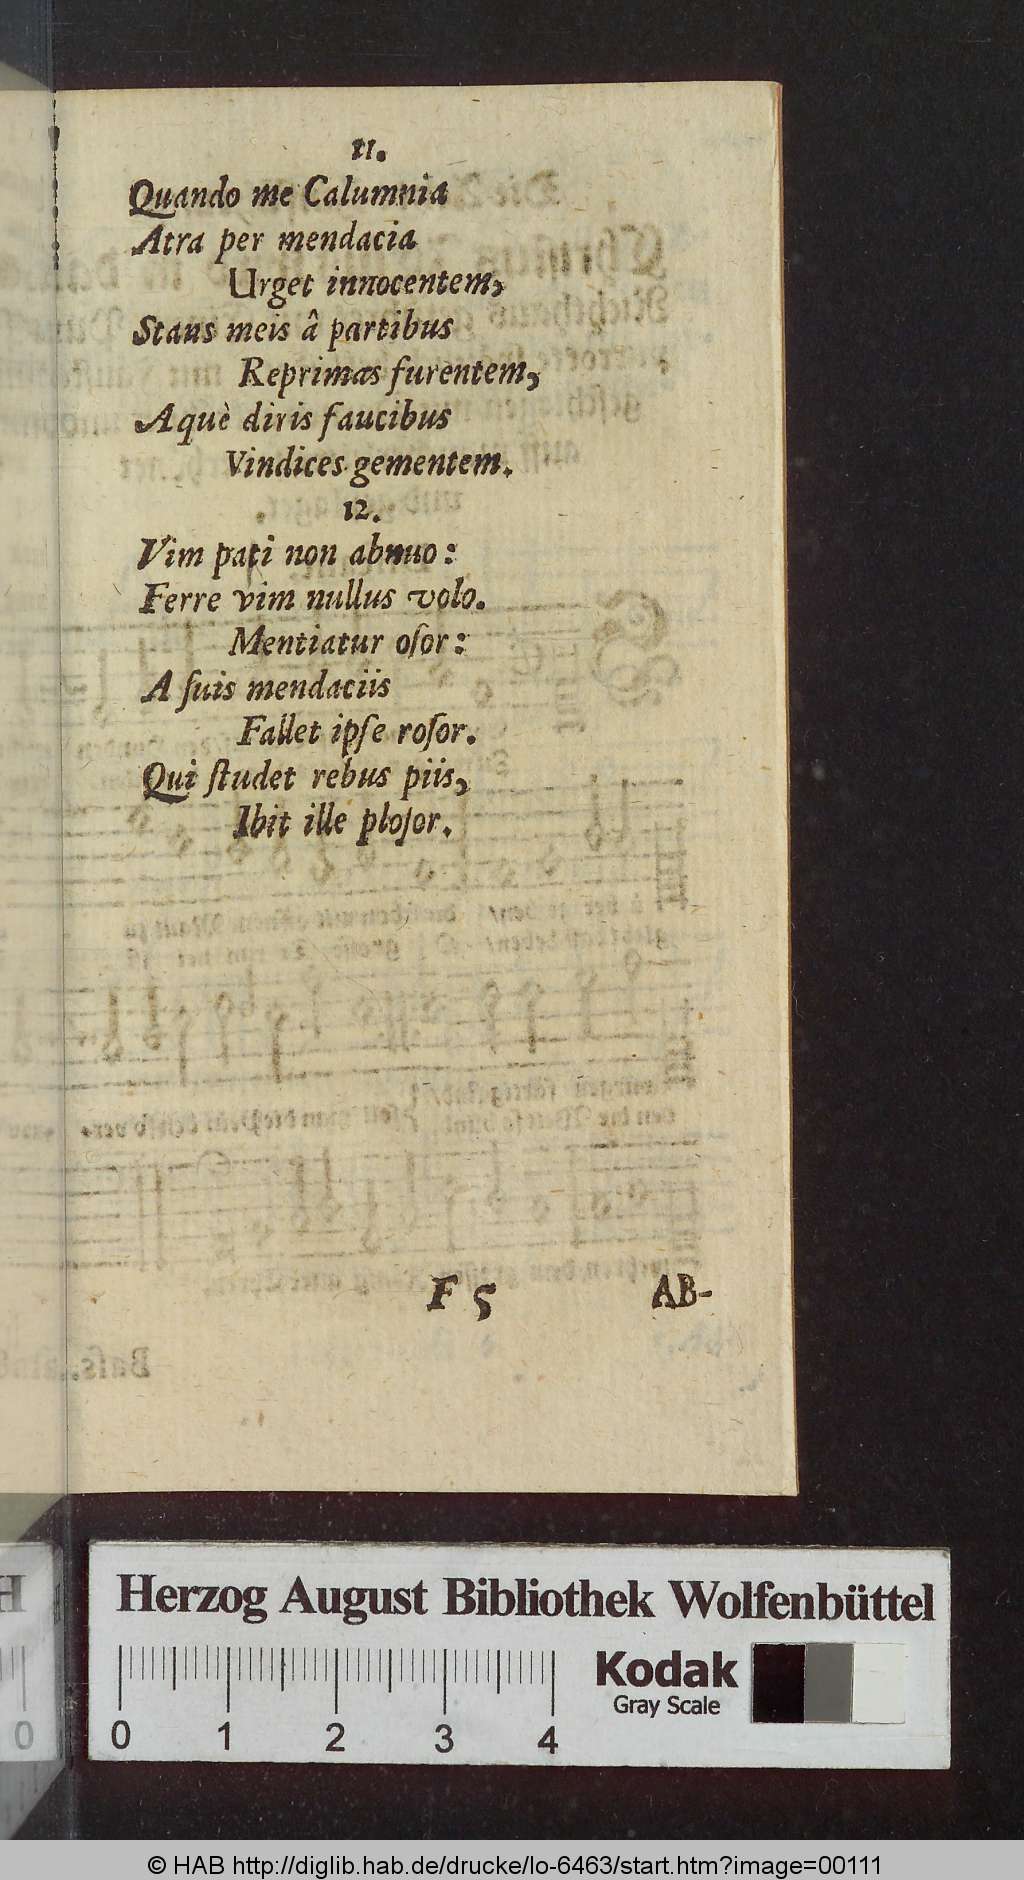 11.
Quando me Calumnia
Atra per mendacia
Urget innocentem,
Stans meis â partibus
Reprimas furentem,
Aquè diris faucibus
Vindices gementem.
12.
Vim pati non abnuo:
Ferre vim nullus volo.
Mentiatur oſor:
A ſuis mendaciis
Fallet ipſe roſor.
Qui ſtudet rebus piis,
Ibit ille ploſor.
F 5 AB-
Herzog August Bibliothek Wolfenbüttel
Kodak
Gray Scale
0 1 2 3 4
© HAB http://diglib.hab.de/drucke/lo-6463/start.htm?image=00111